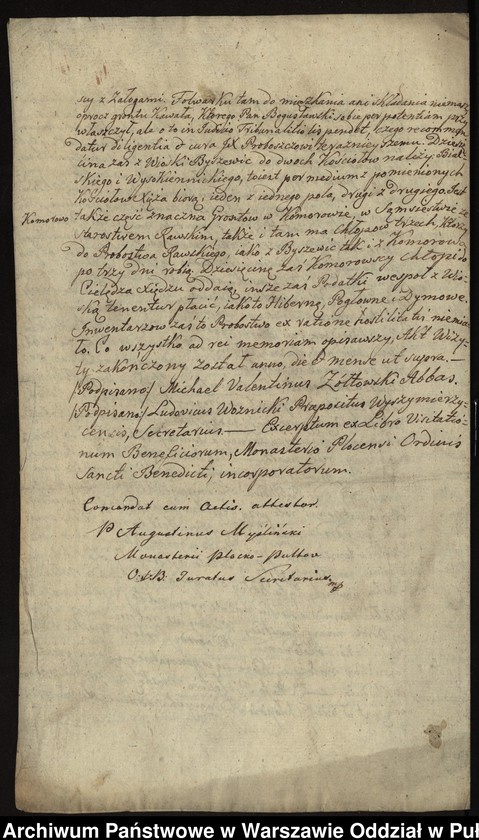 scy z Zalegami. Folwarku tam do mieszkania ani składania niemasz
oprocz gruntu Kawała, którego Pan Bogusławski sobie per potentiam przy
właszczył, ale o to in Judicio Tribunalitio lis pendet, czego recommen
datur diligentia et cura JX Proboszczowi teraznieyszemu. Dziesię
cina zaś z Wioski Byszewic do dwoch Kościołow należy: Bial
skiego i Wysokiennickiego, to iest per medium z pomienionych
Kościołow Xięża biorą, ieden z iednego pola, drugi z drugiego. Jest
Komorowo także część znaczna Gruntow w Komorowie, w Sąmsiestwie ze
Starostwem Rawskim, także i tam ma Chłopow trzech, którzy
do Probostwa Rawskiego, iako z Byszewic tak i z Komorowa
po trzy dni robią. Dziesięcinę zaś Komorowscy chłopi do
Cielądza Xiędzu oddaią, insze zaś Podatki wespoł z Wio
ską tenentur płacić, iako to Hibernę, Pogłowne i Dymowe.
Inwentarzow zaś to Probostwo ex ratione hostilitatis niemia
ło. Co wszystko ad rei memoriam opisawszy, Akt Wizy
ty zakończony został anno, die et mense ut supra. —
/Podpisano:/ Michael Valentinus Zółtowski Abbas.
/Podpisano:/ Ludovicus Woznicki Præpositus Wyszymierzy
censis, Secretarius. — Excerptum ex Libro Visitatio
num Beneficiorum, Monasterio Plocensi Ordinis
Sancti Benedicti, incorporatorum.
Concordat cum Actis. attestor.
P Augustinus Myśliński
Monasterii Plocko-Pultov
O.S.B. Juratus Secretarius mp
Archiwum Państwowe w Warszawie Oddział w Puł